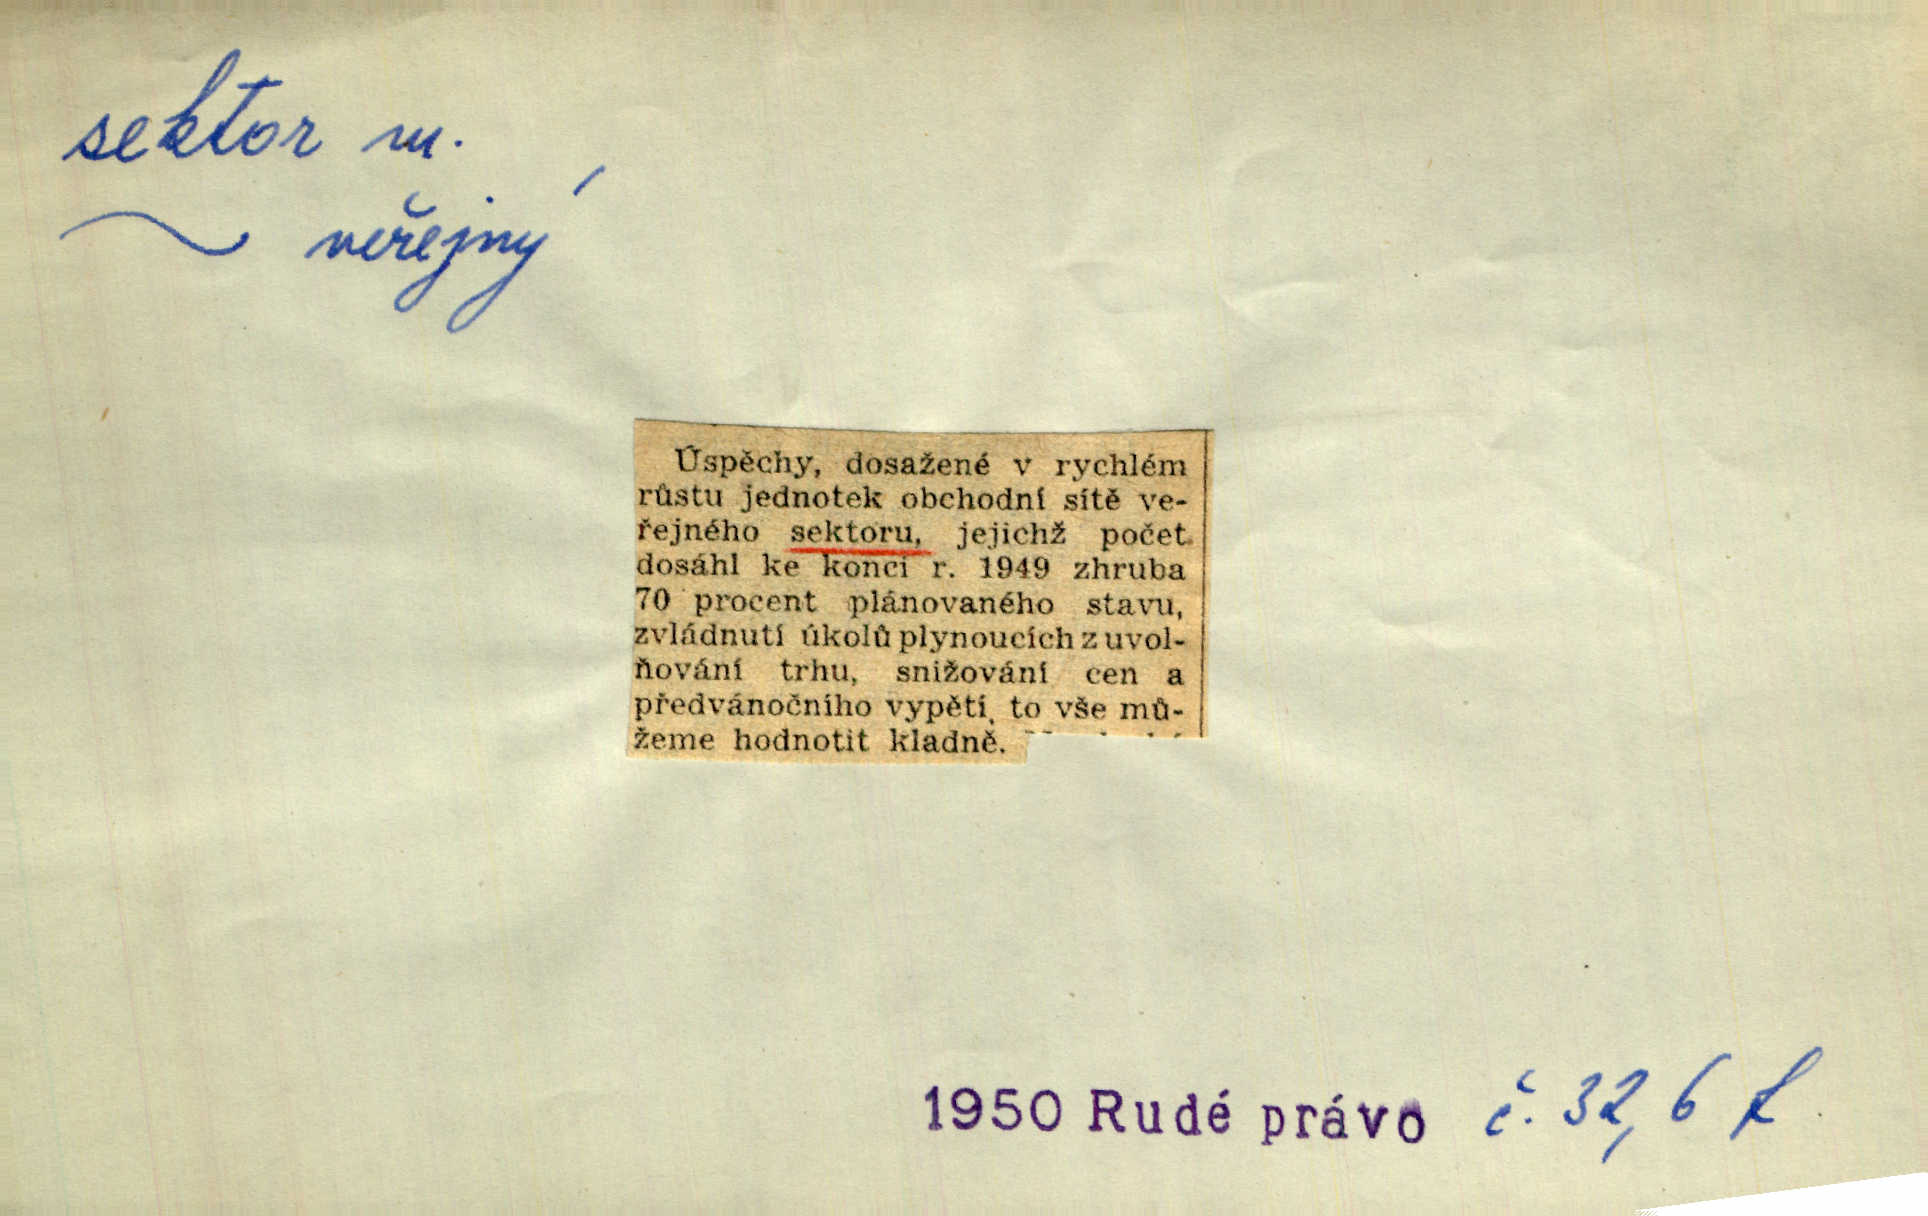 sektor m.
~ veřejný
Úspěchy, dosažené v rychlém
růstu jednotek obchodní sítě ve-
řejného sektoru, jejichž počet
dosáhl ke konci r. 1949 zhruba
70 procent plánovaného stavu,
zvládnutí úkolů plynoucích z uvol-
ňování trhu, snižování cen a
předvánočního vypětí, to vše mů-
žeme hodnotit kladně.
1950 Rudé právo č. 32, 6